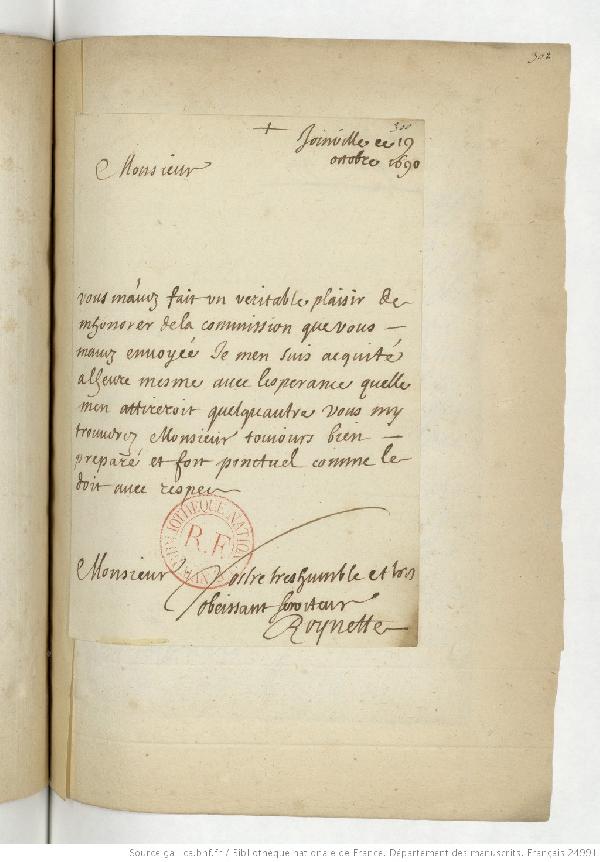 302
300
+
Joinville ce 19
octobre 1690
Monsieur
vous mauez fait vn veritable plaisir de
mhonorer de la commission que vous —
mauez enuoyée Je men suis acquité
alheure mesme auec lesperance quelle
men attireroit quelquautre vous my
trouuerez Monsieur tousiours bien —
preparé et fort ponctuel comme le
doit auec respect
BIBLIOTHEQUE NATIONALE
R.F.
Monsieur Vostre treshumble et tres
obeissant seruiteur
Roynette
Source gallica.bnf.fr / Bibliothèque nationale de France. Département des manuscrits. Français 24991